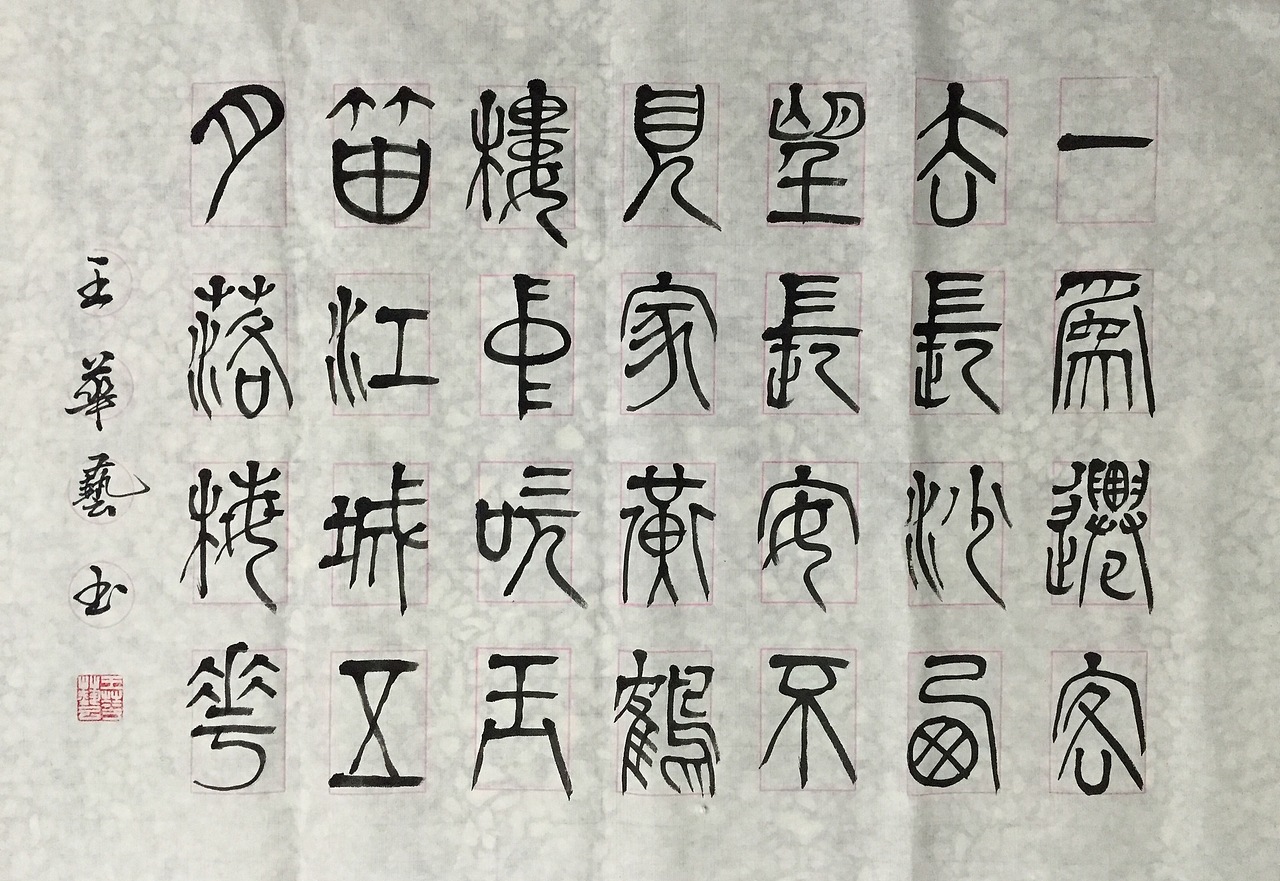 一爲遷客
去長沙西
望長安不
見家黃鶴
樓中吹玉
笛江城五
月落梅花
王華藝书